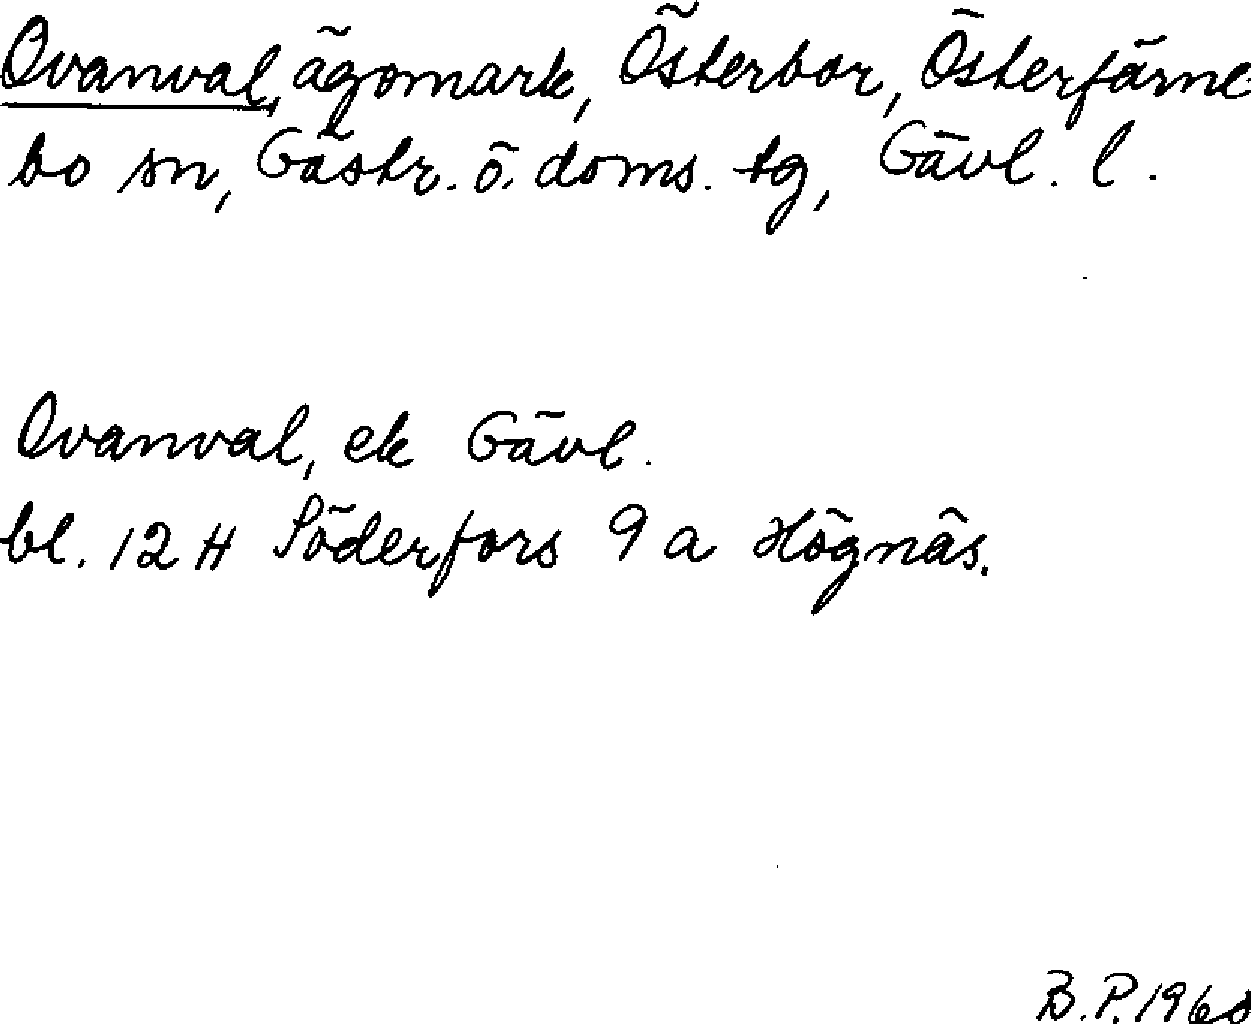 Ovanval, ägomark, Österbor, Österfärne
bo sn, Gästr. ö. doms. tg, Gävl. l.
Ovanval, ek Gävl.
bl. 12 H Söderfors 9 a Högnäs.
B.P. 1968